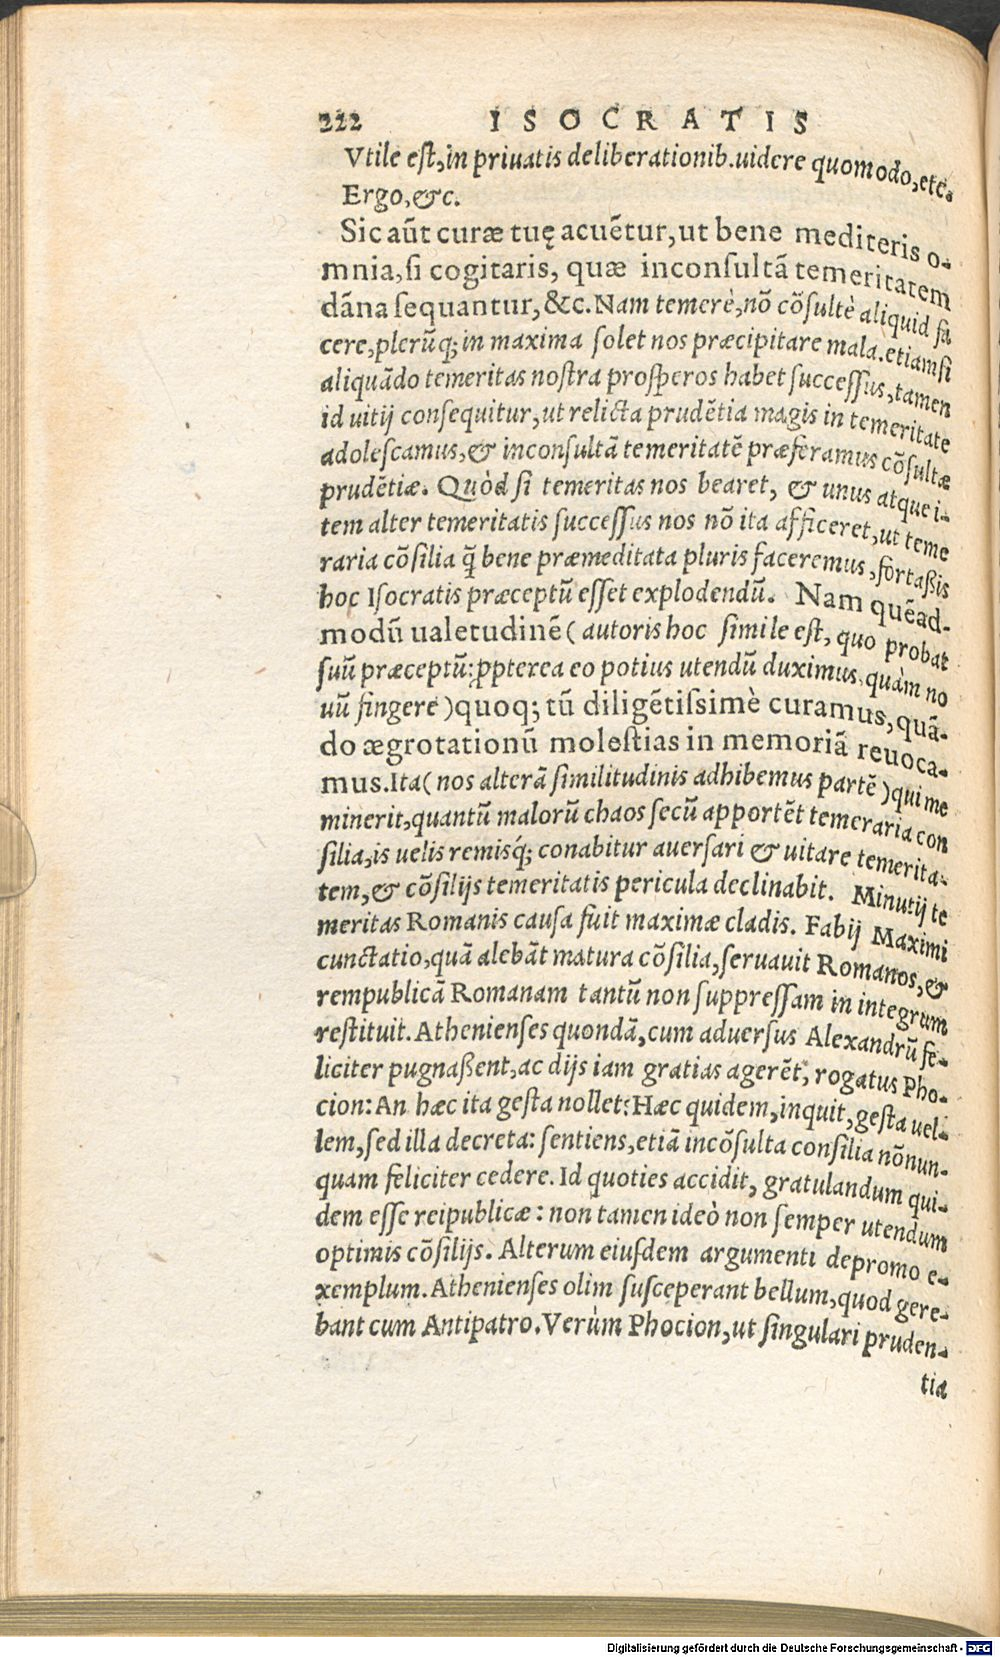 222 ISOCRATIS
Vtile eſt, in priuatis deliberationib. uidere quomodo, etc.
Ergo, &c.
Sic aūt curæ tuę acuētur, ut bene mediteris o-
mnia, ſi cogitaris, quæ inconſultā temeritatem
dāna ſequantur, &c. Nam temerè, nō cōſultè aliquid fa
cere, plerūq; in maxima ſolet nos præcipitare mala. etiamſi
aliquādo temeritas noſtra proſperos habet ſucceſſus, tamen
id uitij conſequitur, ut relicta prudētia magis in temeritate
adoleſcamus, & inconſultā temeritatē præferamus cōſultæ
prudētiæ. Quòd ſi temeritas nos bearet, & unus atque i-
tem alter temeritatis ſucceſſus nos nō ita afficeret, ut teme
raria cōſilia q̄ bene præmeditata pluris faceremus, fortaßis
hoc Iſocratis præceptū eſſet explodendū. Nam quēad-
modū ualetudinē ( autoris hoc ſimile eſt, quo probat
ſuū præceptū: ꝓpterea eo potius utendū duximus, quàm no
uū fingere ) quoq; tū diligētiſsimè curamus, quā-
do ægrotationū moleſtias in memoriā reuoca-
mus. Ita ( nos alterā ſimilitudinis adhibemus partē ) qui me
minerit, quantū malorū chaos ſecū apportēt temeraria con
ſilia, is uelis remisq́; conabitur auerſari & uitare temerita-
tem, & cōſilijs temeritatis pericula declinabit. Minutij te
meritas Romanis cauſa fuit maximæ cladis. Fabij Maximi
cunctatio, quā alebāt matura cōſilia, ſeruauit Romanos, &
rempublicā Romanam tantū non ſuppreſſam in integrum
reſtituit. Athenienſes quondā, cum aduerſus Alexandrū fe-
liciter pugnaßent, ac dijs iam gratias agerēt, rogatus Pho-
cion: An hæc ita geſta nollet: Hæc quidem, inquit, geſta uel-
lem, ſed illa decreta: ſentiens, etiā incōſulta conſilia nōnun-
quam feliciter cedere. Id quoties accidit, gratulandum qui-
dem eſſe reipublicæ: non tamen ideò non ſemper utendum
optimis cōſilijs. Alterum eiuſdem argumenti depromo e-
xemplum. Athenienſes olim ſuſceperant bellum, quod gere-
bant cum Antipatro. Verùm Phocion, ut ſingulari pruden-
tia
Digitalisierung gefördert durch die Deutsche Forschungsgemeinschaft - DFG